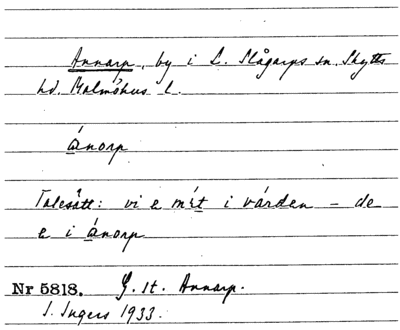 Annarp, by i L. Slågarps sn, Skytts
hd. Malmöhus l.
ánorp
Talesätt: vi e mitt i várden – de
e i ánorp
Nr 5818. G. st. Annarp.
I. Ingers 1933.